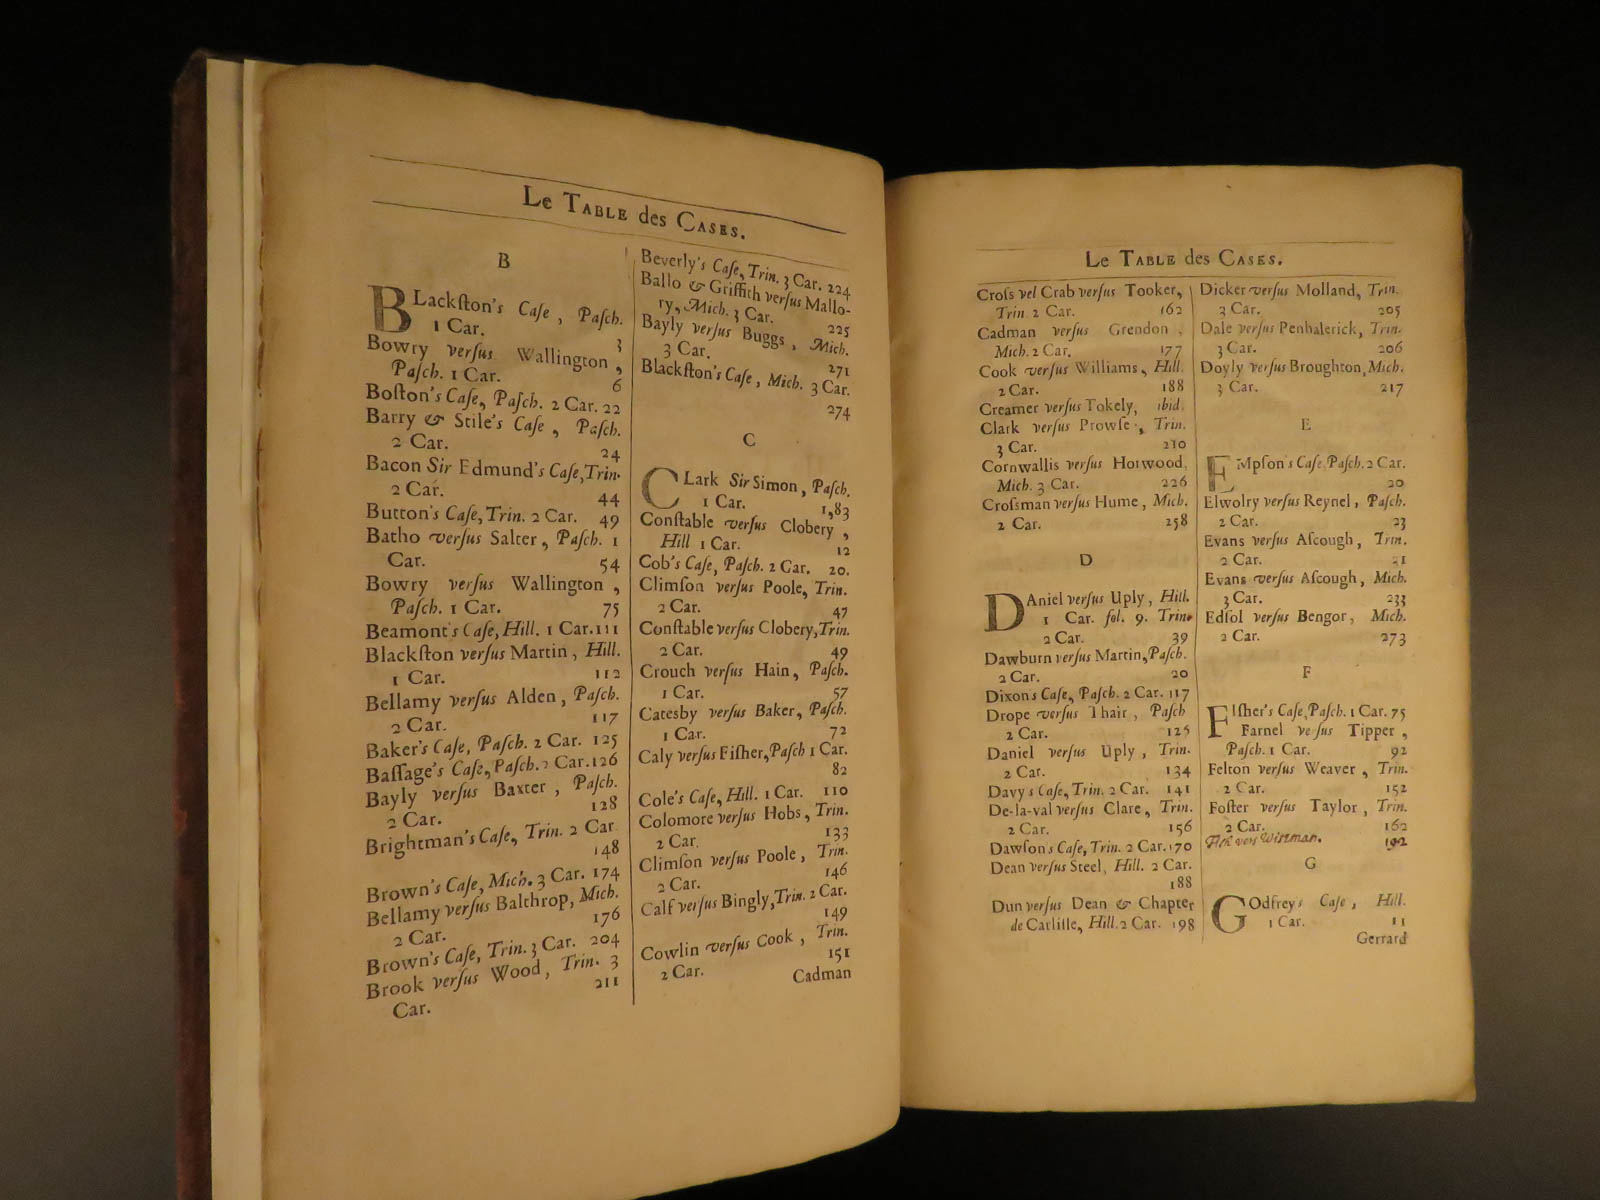 Le TABLE des CASES.
B
BLackſton's Caſe, Paſch.
1 Car. 3
Bowry verſus Wallington,
Paſch. 1 Car. 6
Boſton's Caſe, Paſch. 2 Car. 22
Barry & Stile's Caſe, Paſch.
2 Car. 24
Bacon Sir Edmund's Caſe, Trin.
2 Car. 44
Button's Caſe, Trin. 2 Car. 49
Batho verſus Salter, Paſch. 1
Car. 54
Bowry verſus Wallington,
Paſch. 1 Car. 75
Beamont's Caſe, Hill. 1 Car. 111
Blackſton verſus Martin, Hill.
1 Car. 112
Bellamy verſus Alden, Paſch.
2 Car. 117
Baker's Caſe, Paſch. 2 Car. 125
Baſſage's Caſe, Paſch. 2 Car. 126
Bayly verſus Baxter, Paſch.
2 Car. 128
Brightman's Caſe, Trin. 2 Car
148
Brown's Caſe, Mich. 3 Car. 174
Bellamy verſus Balthrop, Mich.
2 Car. 176
Brown's Caſe, Trin. 3 Car. 204
Brook verſus Wood, Trin. 3
Car. 211
Beverly's Caſe, Trin. 3 Car. 224
Ballo & Griffith verſus Mallo-
ry, Mich. 3 Car. 225
Bayly verſus Buggs, Mich.
3 Car. 271
Blackſton's Caſe, Mich. 3 Car.
274
C
CLark Sir Simon, Paſch.
1 Car. 1,83
Conſtable verſus Clobery,
Hill 1 Car. 12
Cob's Caſe, Paſch. 2 Car. 20.
Climſon verſus Poole, Trin.
2 Car. 47
Conſtable verſus Clobery, Trin.
2 Car. 49
Crouch verſus Hain, Paſch.
1 Car. 57
Catesby verſus Baker, Paſch.
1 Car. 72
Caly verſus Fiſher, Paſch 1 Car.
82
Cole's Caſe, Hill. 1 Car. 110
Colomore verſus Hobs, Trin.
2 Car. 133
Climſon verſus Poole, Trin.
2 Car. 146
Calf verſus Bingly, Trin. 2 Car.
149
Cowlin verſus Cook, Trin.
2 Car. 151
Cadman
Le TABLE des CASES.
Croſs vel Crab verſus Tooker,
Trin 2 Car. 162
Cadman verſus Grendon.
Mich. 2 Car. 177
Cook verſus Williams, Hill.
2 Car. 188
Creamer verſus Tokely, ibid.
Clark verſus Prowſe, Trin.
3 Car. 210
Cornwallis verſus Horwood,
Mich. 3 Car. 226
Croſsman verſus Hume, Mich.
2 Car. 258
D
DAniel verſus Uply, Hill.
1 Car. fol. 9. Trin.
2 Car. 39
Dawburn verſus Martin, Paſch.
2 Car. 20
Dixon's Caſe, Paſch. 2 Car. 117
Drope verſus Thair, Paſch
2 Car. 125
Daniel verſus Uply, Trin.
2 Car. 134
Davy s Caſe, Trin. 2 Car. 141
De-la-val verſus Clare, Trin.
2 Car. 156
Dawſon's Caſe, Trin. 2 Car. 170
Dean verſus Steel, Hill. 2 Car.
188
Dun verſus Dean & Chapter
de Carliſle, Hill. 2 Car. 198
Dicker verſus Molland, Trin.
3 Car. 205
Dale verſus Penhalerick, Trin.
3 Car. 206
Doyly verſus Broughton, Mich.
3 Car. 217
E
EMpſon's Caſe, Paſch. 2 Car.
20
Elwolry verſus Reynel, Paſch.
2 Car. 23
Evans verſus Aſcough, Trin.
2 Car. 21
Evans verſus Aſcough, Mich.
3 Car. 233
Edſol verſus Bengor, Mich.
2 Car. 273
F
FIſher's Caſe, Paſch. 1 Car. 75
Farnel ve ſus Tipper,
Paſch. 1 Car. 92
Felton verſus Weaver, Trin.
2 Car. 152
Foſter verſus Taylor, Trin.
2 Car. 162
vers Wiseman. 192
G
GOdfrey's Caſe, Hill.
1 Car. 11
Gerrard